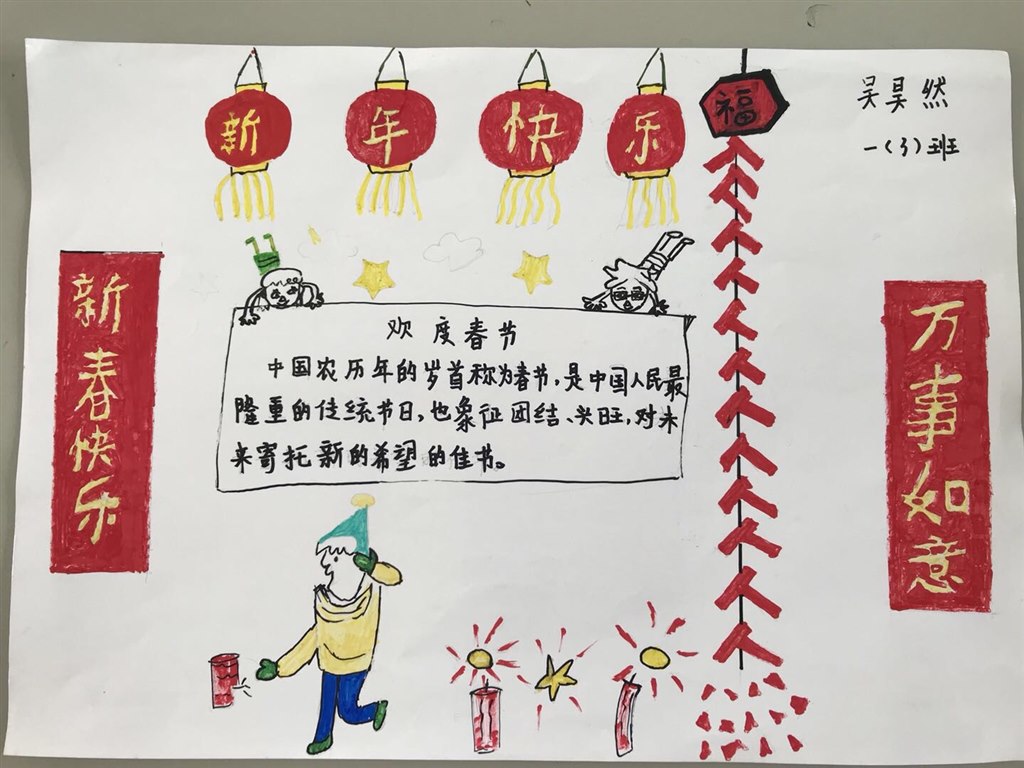 新年快乐
福
吴昊然
一(3)班
新春快乐
万事如意
欢度春节
中国农历年的岁首称为春节,是中国人民最
隆重的传统节日,也象征团结、兴旺,对未
来寄托新的希望的佳书。